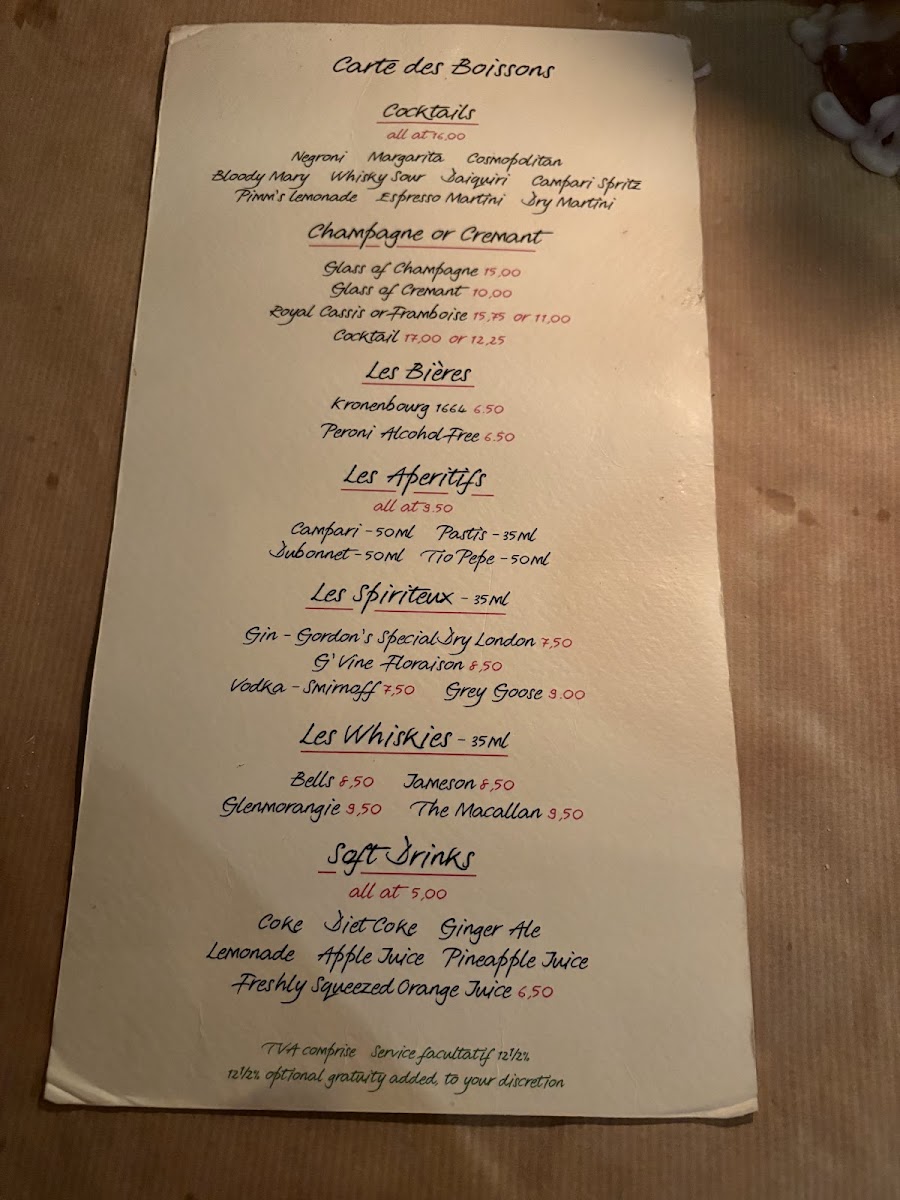 Carte des Boissons
Cocktails
all at 16,00
Negroni Margarita Cosmopolitan
Bloody Mary Whisky Sour Daiquiri Campari Spritz
Pimm's lemonade Espresso Martini Dry Martini
Champagne or Cremant
Glass of Champagne 15,00
Glass of Cremant 10,00
Royal Cassis or Framboise 15,75 or 11,00
Cocktail 17,00 or 12,25
Les Bières
Kronenbourg 1664 6.50
Peroni Alcohol Free 6.50
Les Aperitifs
all at 9.50
Campari - 50ml Pastis - 35ml
Dubonnet - 50ml Tio Pepe - 50ml
Les Spiriteux - 35ml
Gin - Gordon's Special Dry London 7,50
G'Vine Floraison 8,50
Vodka - Smirnoff 7,50 Grey Goose 9.00
Les Whiskies - 35ml
Bells 8,50 Jameson 8,50
Glenmorangie 9,50 The Macallan 9,50
Soft Drinks
all at 5,00
Coke Diet Coke Ginger Ale
Lemonade Apple Juice Pineapple Juice
Freshly Squeezed Orange Juice 6,50
TVA comprise Service facultatif 12½%
12½% optional gratuity added, to your discretion